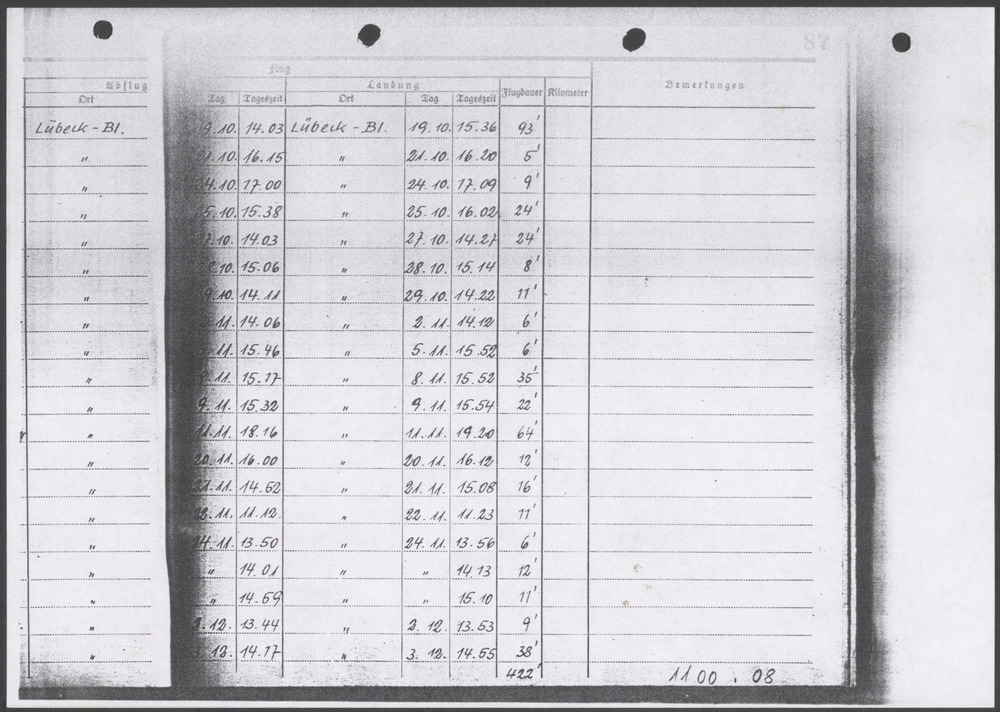 87
Flug
Abflug Landung Flugdauer Kilometer Bemerkungen
Ort Tag Tageszeit Ort Tag Tageszeit
Lübeck - Bl. 9.10. 14.03 Lübeck - Bl. 19.10. 15.36 93'
" 21.10. 16.15 " 21.10. 16.20 5'
" 24.10. 17.00 " 24.10. 17.09 9'
" 25.10. 15.38 " 25.10. 16.02 24'
" 27.10. 14.03 " 27.10. 14.27 24'
" 28.10. 15.06 " 28.10. 15.14 8'
" 9.10. 14.11 " 29.10. 14.22 11'
" 2.11. 14.06 " 2.11. 14.12 6'
" 5.11. 15.46 " 5.11. 15.52 6'
" 8.11. 15.17 " 8.11. 15.52 35'
" 9.11. 15.32 " 9.11. 15.54 22'
" 11.11. 18.16 " 11.11. 19.20 64'
" 20.11. 16.00 " 20.11. 16.12 12'
" 21.11. 14.52 " 21.11. 15.08 16'
" 22.11. 11.12. " 22.11. 11.23 11'
" 24.11. 13.50 " 24.11. 13.56 6'
" " 14.01 " " 14.13 12'
" " 14.59 " " 15.10 11'
" 2.12. 13.44 " 2.12. 13.53 9'
" 3.12. 14.17 " 3.12. 14.55 38'
422'
1100.08